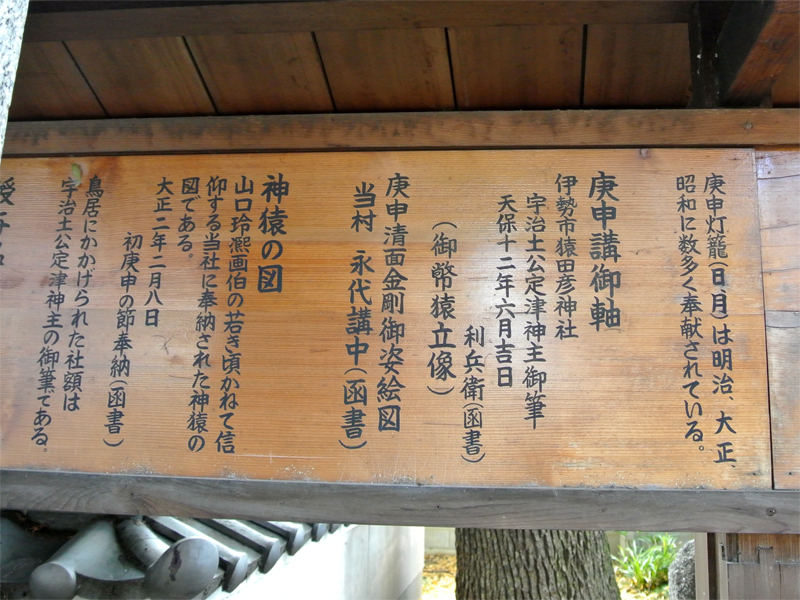 庚申灯籠(日、月)は明治、大正、
昭和に数多く奉献されている。
庚申講御軸
伊勢市猿田彦神社
宇治土公定津神主御筆
天保十二年六月吉日
利兵衛(函書)
(御幣猿立像)
庚申清面金剛御姿絵図
当村 永代講中(函書)
神猿の図
山口玲凞画伯の若き頃かねて信
仰する当社に奉納された神猿の
図である。
大正二年二月八日
初庚申の節奉納(函書)
鳥居にかかげられた社額は
宇治土公定津神主の御筆である。